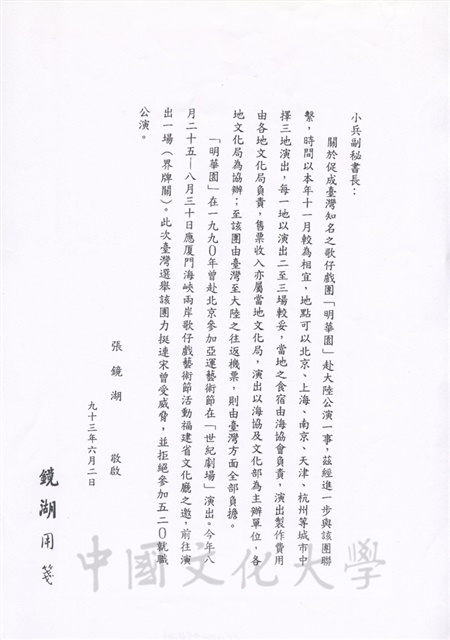 小兵副秘書長：
關於促成臺灣知名之歌仔戲團「明華園」赴大陸公演一事，茲經進一步與該團聯
繫，時間以本年十一月較為相宜，地點可以北京、上海、南京、天津、杭州等城市中
擇三地演出，每一地以演出二至三場較妥，當地之食宿由海協會負責，演出製作費用
由各地文化局負責，售票收入亦屬當地文化局，演出以海協及文化部為主辦單位，各
地文化局為協辦；至該團由臺灣至大陸之往返機票，則由臺灣方面全部負擔。
「明華園」在一九九０年曾赴北京參加亞運藝術節在「世紀劇場」演出。今年八
月二十五—八月三十日應厦門海峽兩岸歌仔戲藝術節活動福建省文化廳之邀，前往演
出一場（界牌關）。此次臺灣選舉該團力挺連宋曾受威脅，並拒絕參加五二０就職
公演。
張鏡湖 敬啟
九十三年六月二日
鏡湖用箋
中國文化大學